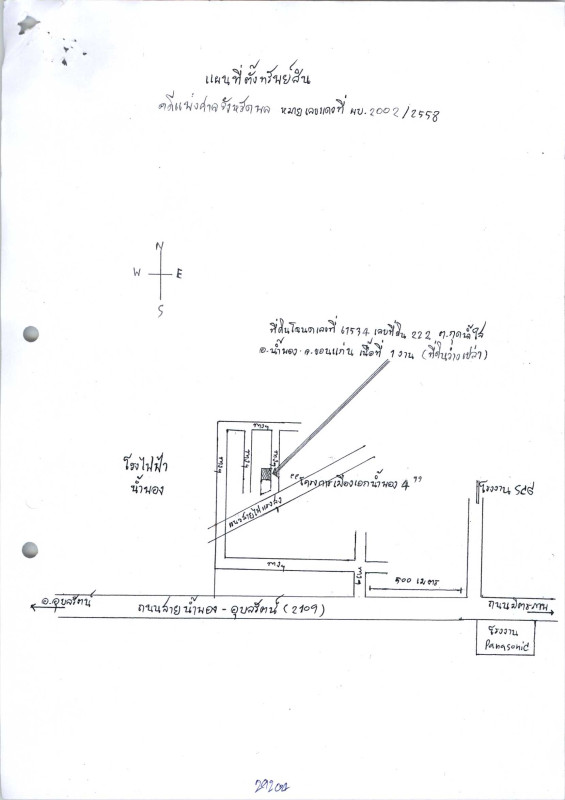 แผนที่ตั้งทรัพย์สิน
คดีแพ่งศาลจังหวัดพล หมายเลขแดงที่ ผบ.2002/2558
N
W E
S
ที่ดินโฉนดเลขที่ 61534 เลขที่ดิน 222 ต.กุดน้ำใส
อ.น้ำพอง จ.ขอนแก่น เนื้อที่ 1 งาน (ที่ดินว่างเปล่า)
โรงไฟฟ้า
น้ำพอง
"โครงการเมืองเอกน้ำพอง 4"
แนวสายไฟแรงสูง
โรงงาน SCG
500 เมตร
อ.อุบลรัตน์
ถนนสายน้ำพอง - อุบลรัตน์ (2109)
ถนนมิตรภาพ
โรงงาน
Panasonic